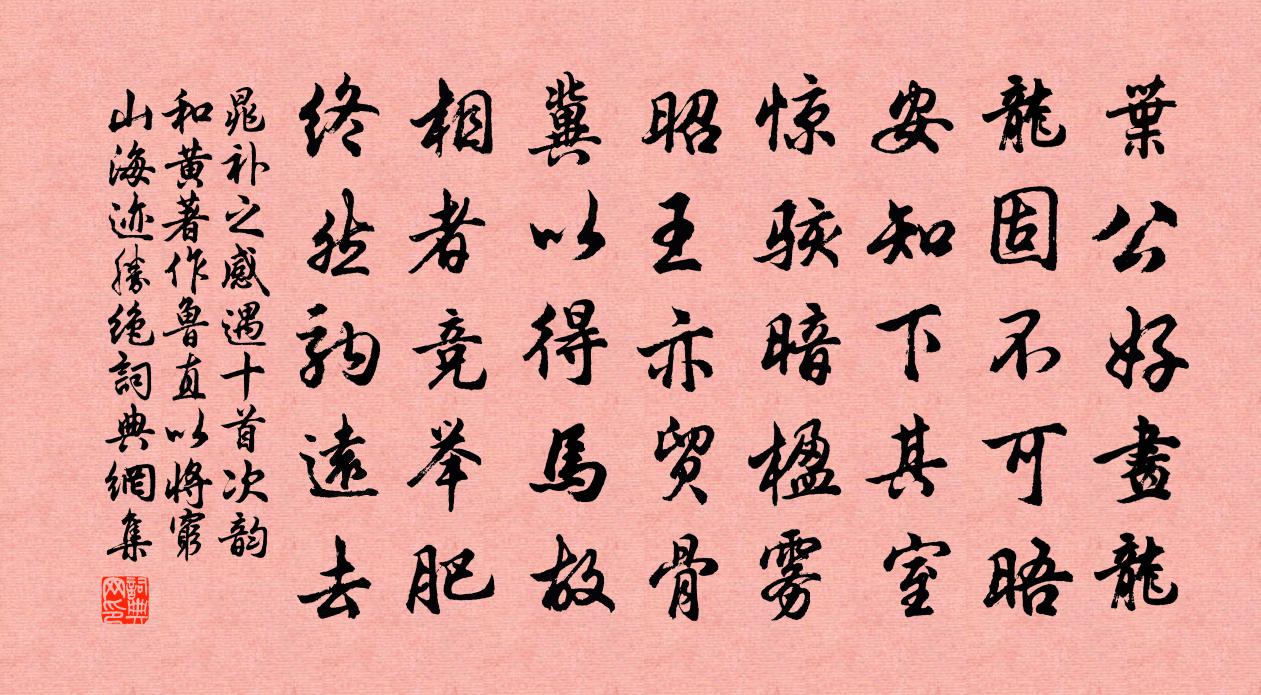 葉公好畫龍
龍固不可晤
安知下其室
惊骇暗楹雾
昭王亦贸骨
冀以得馬故
相者竞举肥
终然遠去
晁补之感遇十首次韵
和黄著作鲁直以将穷
山海迹勝绝詞典網集
詞典
网印